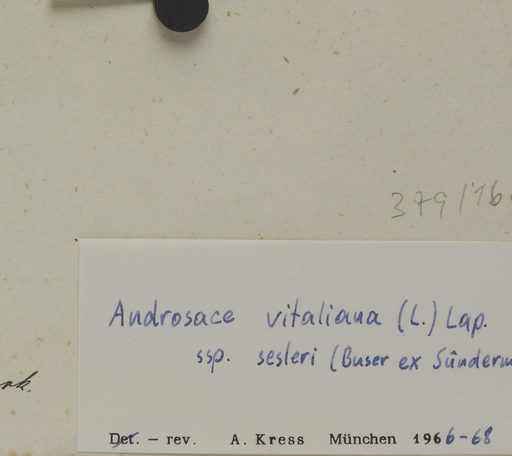 379/16
Androsace vitaliana (L.) Lap.
ssp. sesleri (Buser ex Sünderm
Det. – rev. A. Kress München 1966-68